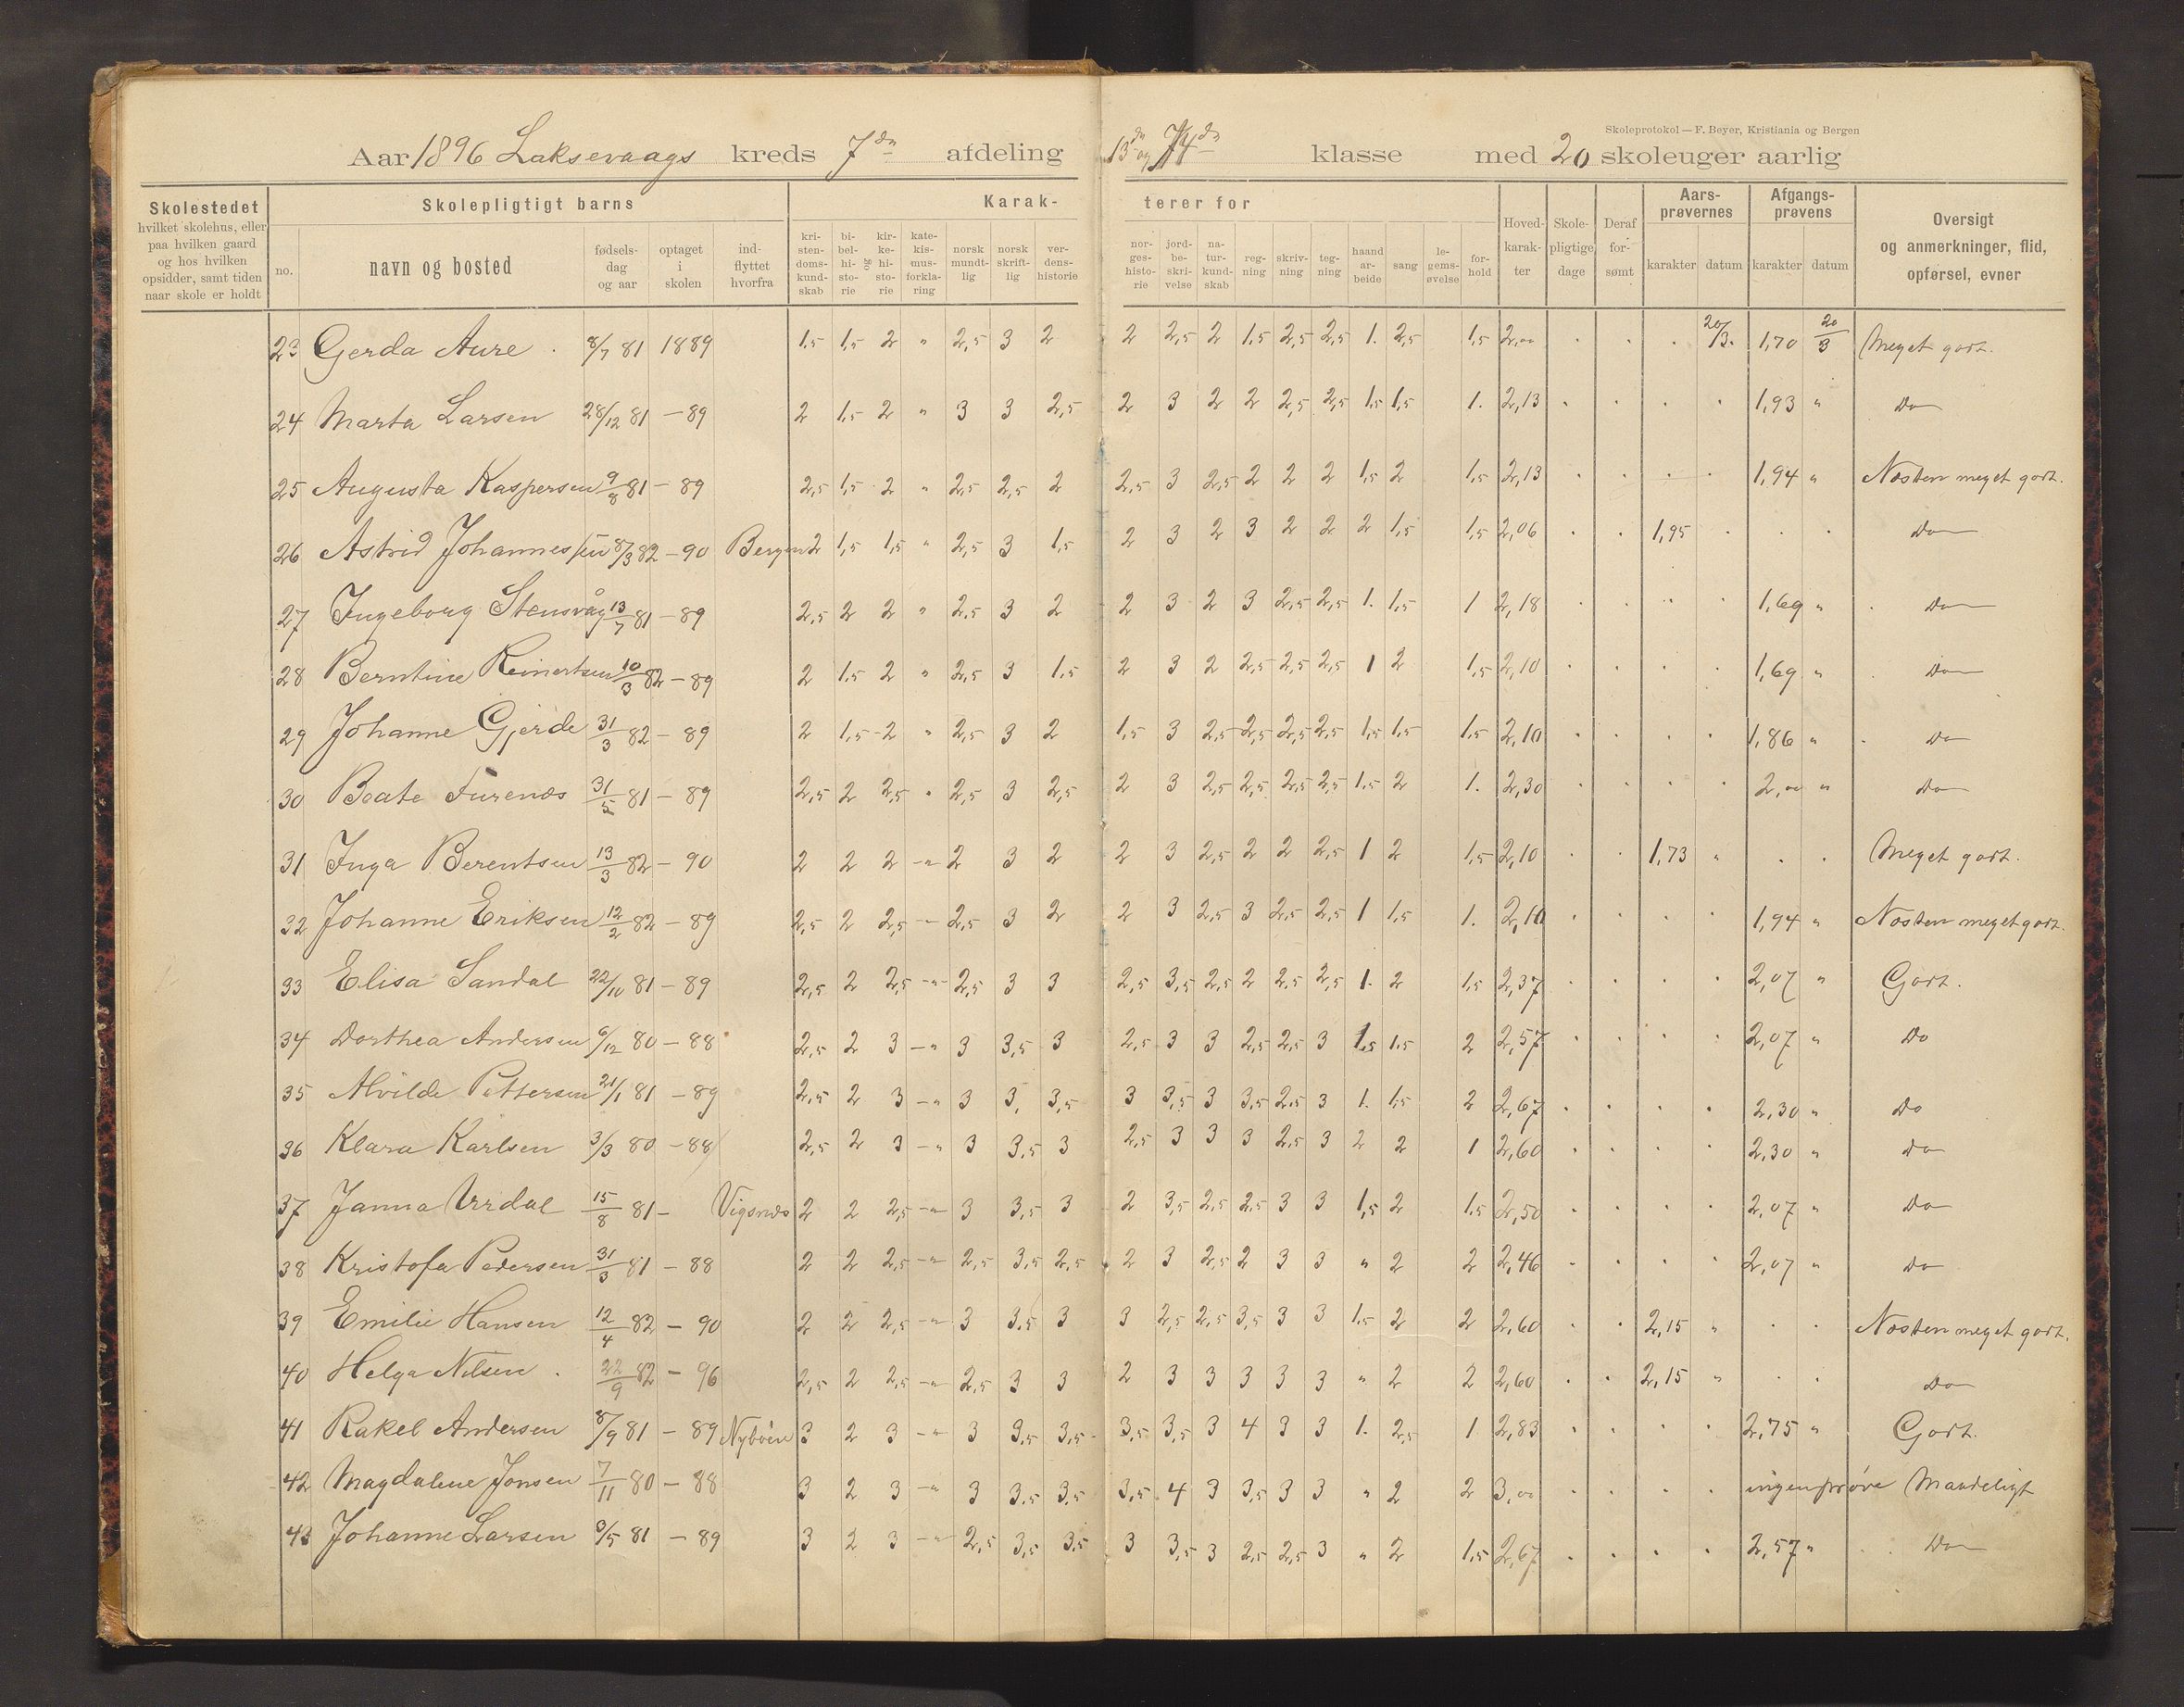 Skoleprotokol — F. Beyer, Kristiania og Bergen
Aar 1896 Laksevaags kreds 7de afdeling 13de og 14de klasse med 20 skoleuger aarlig
Skolestedet hvilket skolehus, eller paa hvilken gaard og hos hvilken opsidder, samt tiden naar skole er holdt
Skolepligtigt barns
no. navn og bosted fødselsdag og aar optaget i skolen indflyttet hvorfra
Karakterer for
kristendomskundskab bibelhistorie og kirkehistorie katekismusforklaring norsk mundtlig norsk skriftlig verdenshistorie norgeshistorie jordbeskrivelse naturkundskab regning skrivning tegning haandarbeide sang legemsøvelse forhold
Hovedkarakter Skolepligtige dage Deraf forsømt
Aarsprøvernes karakter datum Afgangsprøvens karakter datum
Oversigt og anmerkninger, flid, opførsel, evner
23 Gerda Aure 8/7 81 1889 1,5 1,5 2 " 2,5 3 2 2 2,5 2 1,5 2,5 2,5 1. 2,5 1,5 2,00 20/3. 1,70 20/3 Meget godt.
24 Marta Larsen 28/12 81 - 89 2 1,5 2 " 3 3 2,5 2 3 2 2 2,5 2,5 1,5 1,5 1. 2,13 1,93 " Do
25 Augusta Kaspersen 9/8 81 - 89 2,5 1,5 2 " 2,5 2,5 2 2,5 3 2,5 2 2 2 1,5 2 1,5 2,13 1,94 " Næsten meget godt.
26 Astrid Johannessen 8/3 82 - 90 Bergen 2 1,5 1,5 " 2,5 3 1,5 2 3 2 3 2 2 2 1,5 1,5 2,06 1,95 Do
27 Ingeborg Stensvåg 13/7 81 - 89 2,5 2 2 " 2,5 3 2 2 3 2 3 2,5 2,5 1. 1,5 1 2,18 1,69 " Do
28 Berntine Reinertsen 10/3 82 - 89 2 1,5 2 " 2,5 3 1,5 2 3 2 2,5 2,5 2,5 1 2 1,5 2,10 1,69 " Do
29 Johanne Gjerde 31/3 82 - 89 2 1,5 2 " 2,5 3 2 1,5 3 2,5 2,5 2,5 2,5 1,5 1,5 1,5 2,10 1,86 " Do
30 Beate Furenæs 31/5 81 - 89 2,5 2 2,5 " 2,5 3 2,5 2 3 2,5 2,5 2,5 2,5 1,5 2 1. 2,30 2,00 " Do
31 Inga Berentsen 13/3 82 - 90 2 2 2 " 2 3 2 2 3 2,5 2 2 2,5 1 2 1,5 2,10 1,73 " Meget godt.
32 Johanne Eriksen 12/2 82 - 89 2,5 2 2,5 - 2,5 3 2 2 3 2,5 3 2,5 2,5 1 1,5 1. 2,10 1,94 " Næsten meget godt.
33 Elisa Sandal 22/10 81 - 89 2,5 2 2,5 " 2,5 3 3 2,5 3,5 2,5 2 2,5 2,5 1. 2 1,5 2,37 2,07 " Godt.
34 Dorthea Andersen 6/12 80 - 88 2,5 2 3 " 3 3,5 3 2,5 3 3 2,5 2,5 3 1,5 1,5 2 2,57 2,07 " Do
35 Alvilde Pettersen 21/1 81 - 89 2,5 2 3 " 3 3, 3,5 3 3,5 3 3,5 2,5 3 1. 1,5 2 2,67 2,30 " Do
36 Klara Karlsen 3/3 80 - 88 2,5 2 3 " 3 3,5 3 2,5 3 3 3 2,5 3 2 2 1 2,60 2,30 " Do
37 Janna Urdal 15/8 81 - Vigsnæs 2 2 2,5 " 3 3,5 3 2 3,5 2,5 2,5 3 3 1,5 2 1,5 2,50 2,07 " Do
38 Kristofa Pedersen 31/3 81 - 88 2 2 2,5 " 2,5 3,5 2,5 2 3 2,5 2 3 3 " 2 2 2,46 2,07 " Do
39 Emilie Hansen 12/4 82 - 90 2 2 2,5 " 3 3,5 3 3 2,5 2,5 3,5 3 3 1,5 2 2 2,60 2,15 " Næsten meget godt.
40 Helga Nilsen 22/9 82 - 96 2,5 2 2,5 " 2,5 3 3 2 3 3 3 3 3 " 2 2 2,60 2,15 " Do
41 Rakel Andersen 8/9 81 - 89 Nybøen 3 2 3 " 3 3,5 3,5 3,5 3,5 3 4 3 3 1. 2,5 1 2,83 2,75 " Godt.
42 Magdalene Jonsen 7/11 80 - 88 3 2 3 " 3 3,5 3,5 3,5 4 3 3,5 3 3 " 2 2 3,00 ingen prøve Maadeligt
43 Johanne Larsen 3/5 81 - 89 3 2 3 " 2,5 3,5 3,5 3 3,5 3 2,5 2,5 3 " 2 1,5 2,67 2,57 " Do